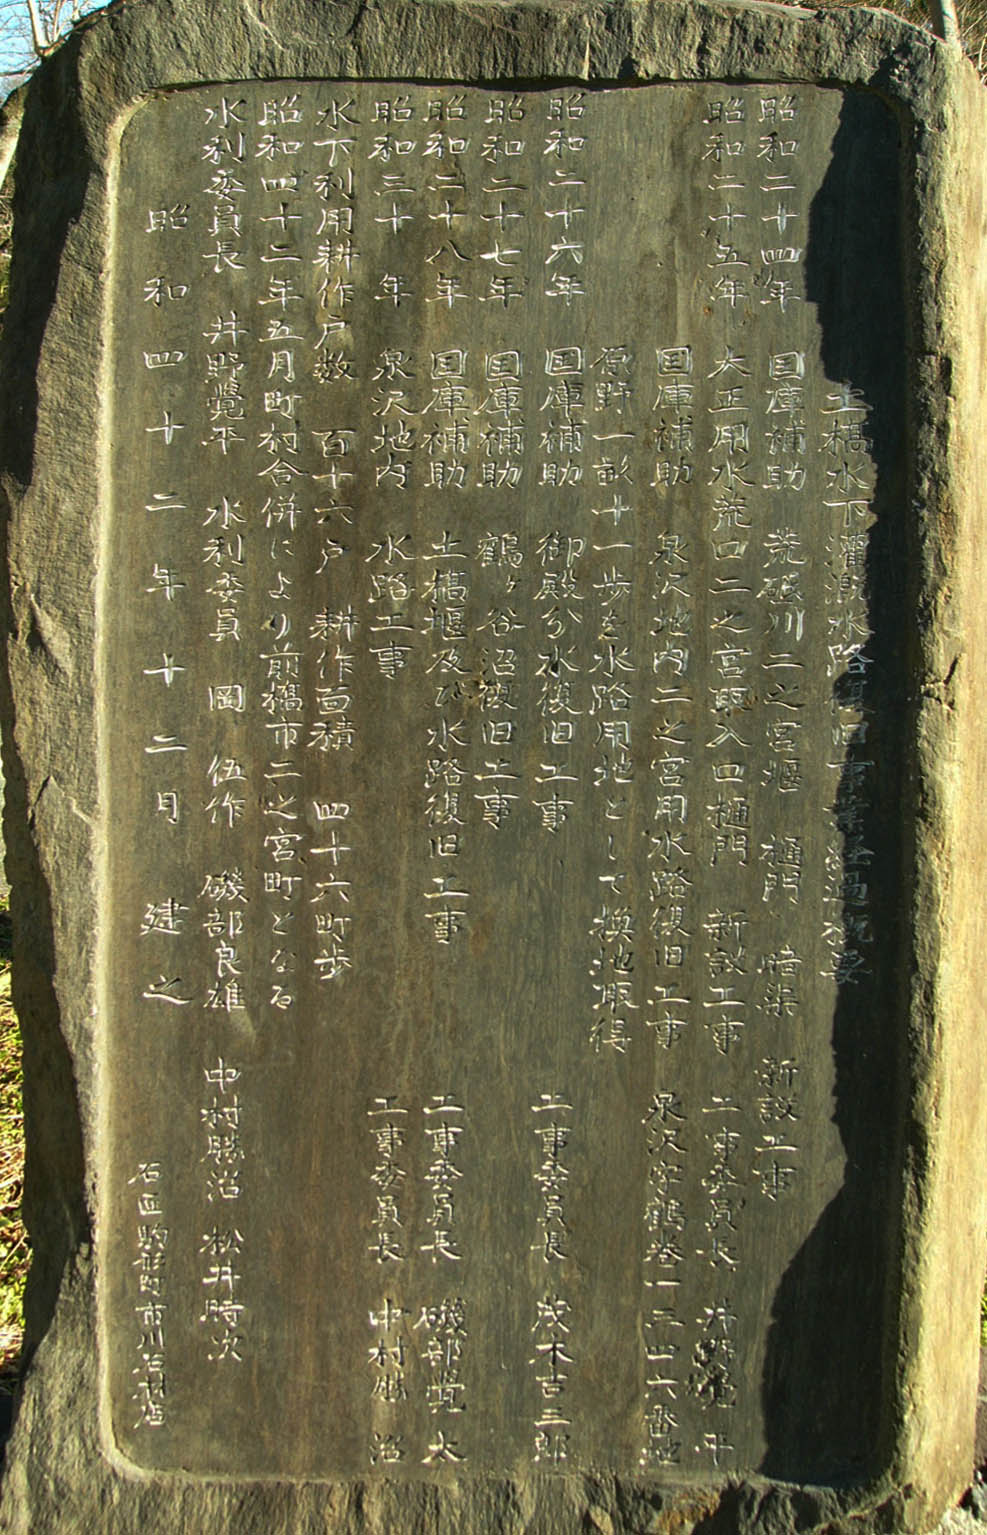 土橋水下灌漑水路復旧事業経過概要
昭和二十四年 国庫補助 荒砥川二之宮堰 樋門 暗渠 新設工事
昭和二十五年 大正用水荒口二之宮取入口樋門 新設工事 工事委員長 井野覺平
国庫補助 泉沢地内二之宮用水路復旧工事 泉沢字鶴巻一二四六番地
原野一畝十一歩を水路用地として換地取得
昭和二十六年 国庫補助 御殿分水復旧工事 工事委員長 茂木吉三郎
昭和二十七年 国庫補助 鶴ヶ谷沼復旧工事
昭和二十八年 国庫補助 土橋堰及び水路復旧工事 工事委員長 磯部覺太
昭和三十年 泉沢地内 水路工事 工事委員長 中村勝沼
水下利用耕作戸数 百十六戸 耕作面積 四十六町歩
昭和四十二年五月町村合併により前橋市二之宮町となる
水利委員長 井野覺平 水利委員 岡伍作 磯部良雄 中村勝沼 松井時次
昭和四十二年十二月 建之
石匠駒形町市川石材店